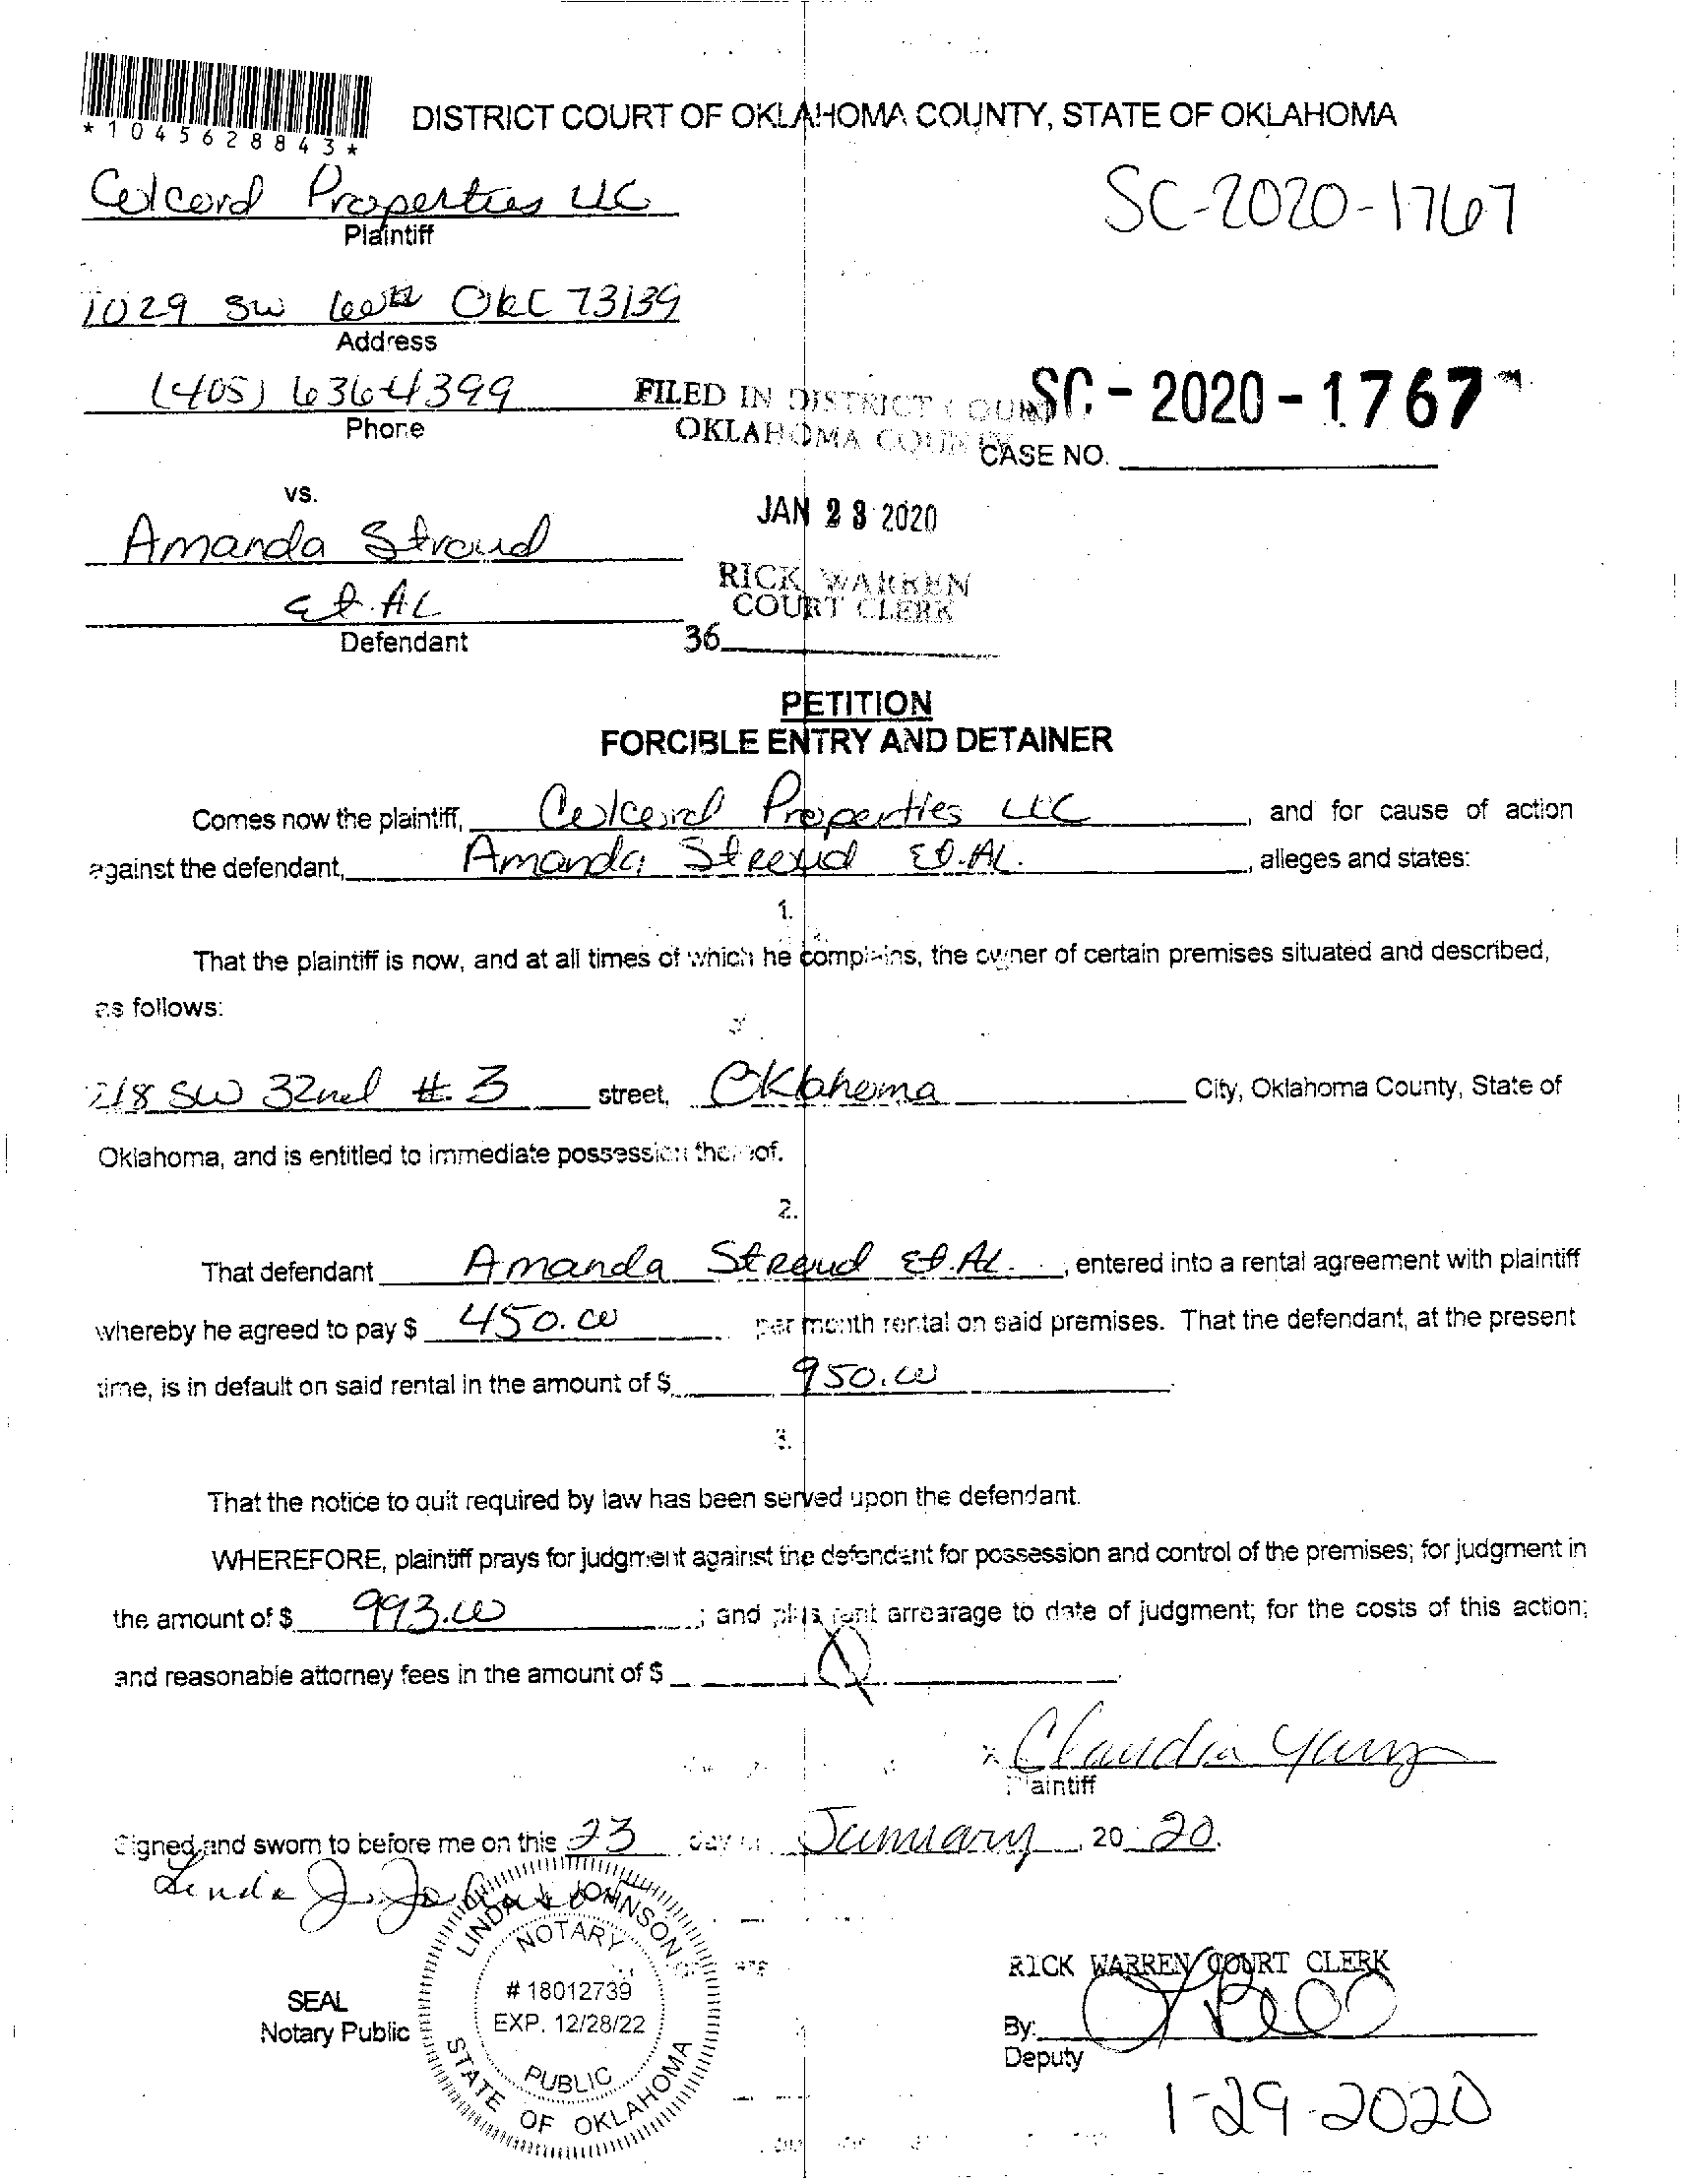 *1045628843*
DISTRICT COURT OF OKLAHOMA COUNTY, STATE OF OKLAHOMA
Colcord Properties LLC
Plaintiff
SC-2020-1767
1029 SW 66th OKC 73139
Address
(405) 636-4399
Phone
FILED IN DISTRICT COURT
OKLAHOMA COUNTY
SC-2020-1767
CASE NO.
vs.
JAN 23 2020
Amanda Stroud
Et. AL
Defendant
RICK WARREN
COURT CLERK
36
PETITION
FORCIBLE ENTRY AND DETAINER
Comes now the plaintiff, Colcord Properties LLC, and for cause of action
against the defendant, Amanda Stroud Et. AL., alleges and states:
1.
That the plaintiff is now, and at all times of which he complains, the owner of certain premises situated and described,
as follows:
718 SW 32nd # 3 street, Oklahoma City, Oklahoma County, State of
Oklahoma, and is entitled to immediate possession thereof.
2.
That defendant Amanda Stroud Et. AL., entered into a rental agreement with plaintiff
whereby he agreed to pay $ 450.00 per month rental on said premises. That the defendant, at the present
time, is in default on said rental in the amount of $ 950.00
3.
That the notice to quit required by law has been served upon the defendant.
WHEREFORE, plaintiff prays for judgment against the defendant for possession and control of the premises; for judgment in
the amount of $ 993.00; and plus rent arrearage to date of judgment; for the costs of this action;
and reasonable attorney fees in the amount of $
Claudia
Plaintiff
Signed and sworn to before me on this 23 day of January, 20 20.
Linda J. Johnson
LINDA J JOHNSON
NOTARY
# 18012739
EXP. 12/28/22
PUBLIC
STATE OF OKLAHOMA
SEAL
Notary Public
RICK WARREN COURT CLERK
By:
Deputy
1-29-2020